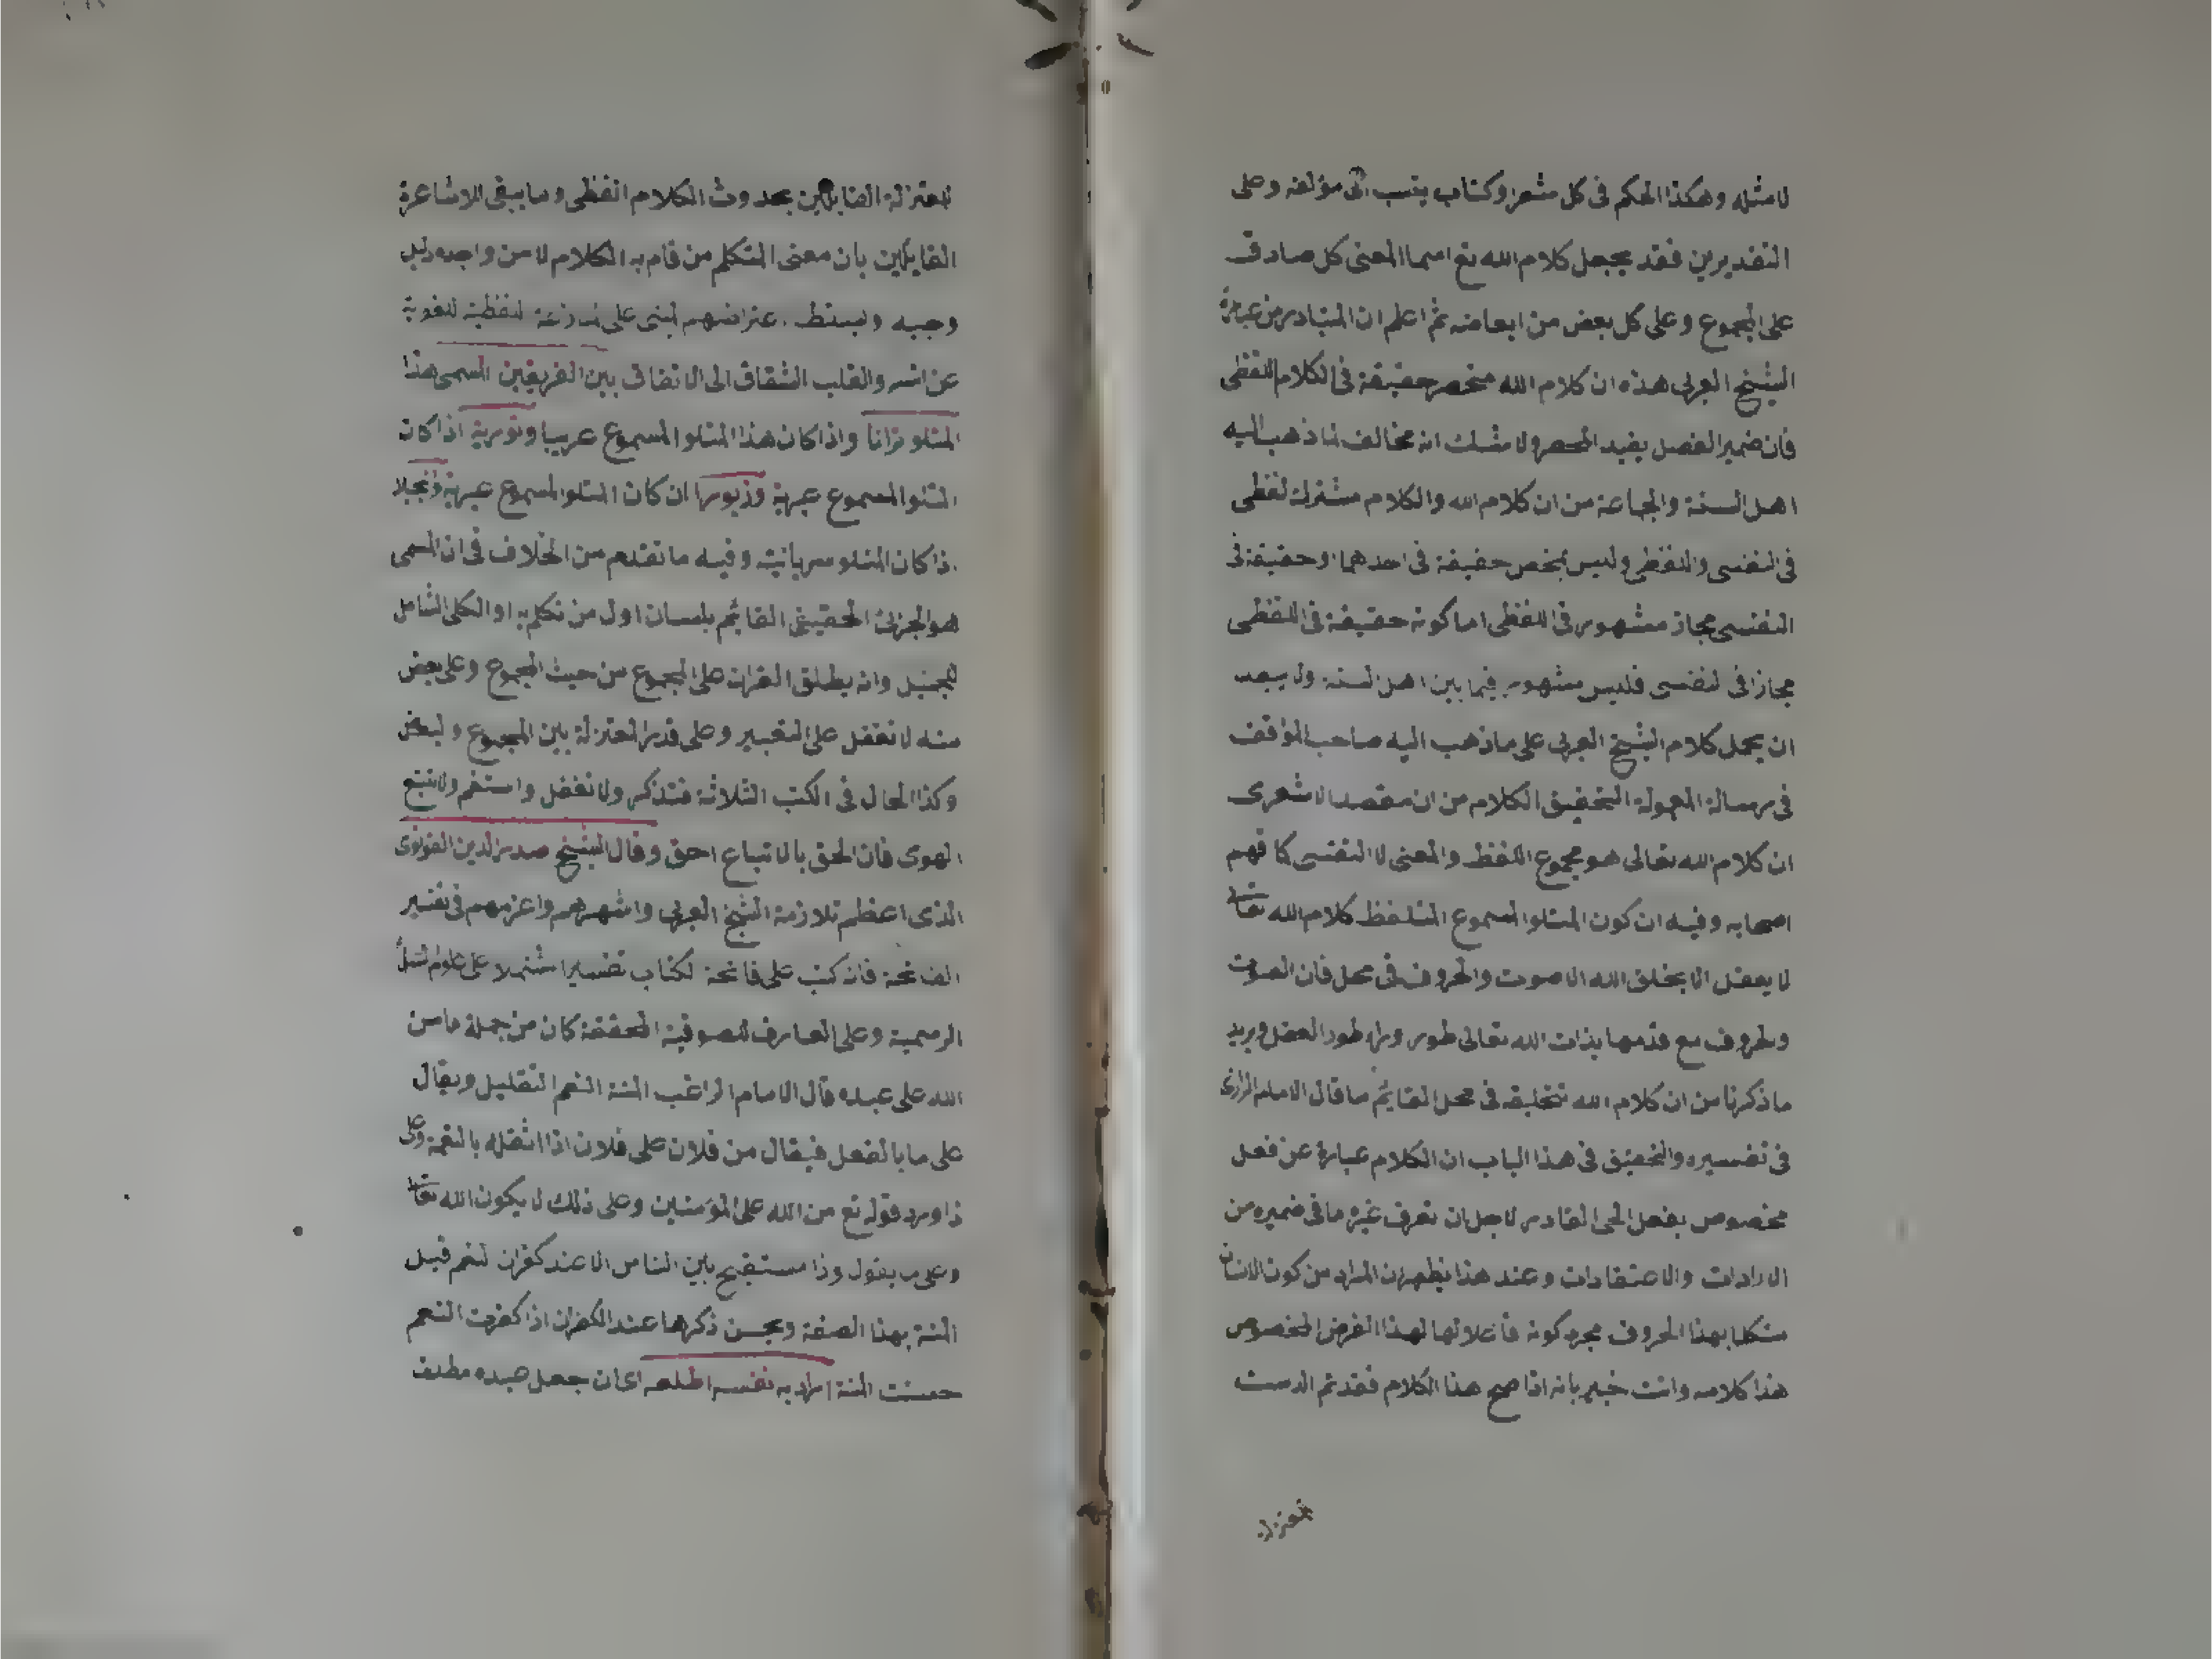 لا مثله وهكذا الحكم فى كل شعر وكتاب ينسب الى مؤلفه وعلى
التقديرين فقد يجعل كلام الله تع اسما لمعنى كل صادق
على المجموع وعلى كل بعض من ابعاضه ثم اعلم ان المتبادر من عبارة
الشيخ العربى هذه ان كلام الله منحصر حقيقة فى الكلام اللفظى
فان ضمير الفصل يفيد الحصر ولا شك انه مخالف لما ذهب اليه
اهل السنة والجماعة من ان كلام الله والكلام مشترك لفظى
فى النفسى واللفظى وليس بمختص حقيقة فى احدهما او حقيقة فى
النفسى مجاز مشهور فى اللفظى اما كونه حقيقة فى اللفظى
مجازا فى النفسى فليس مشهور فيما بين اهل السنة ولا يبعد
ان يحمل كلام الشيخ العربى على ما ذهب اليه صاحب المواقف
فى رسالة المعمولة لتحقيق الكلام من ان مقصد الاشعرى
ان كلام الله تعالى هو مجموع اللفظ والمعنى لا النفسى كما فهم
اصحابه وفيه ان كون المتلو المسموع المتلفظ كلام الله تعالى
لا يعقل الا بخلق الله الاصوت والحروف فى محل فان الصوت
والحروف مع قدمها بذات الله تعالى طور وراء طور العقل ويريد
ما ذكرنا من ان كلام الله بتخليقه فى محل القايم ما قال الامام الرازى
فى تفسيره والتحقيق فى هذا الباب ان الكلام عبارة عن فعل
مخصوص بفعل الحى القادر لاجل ان تعرف غيره ما فى ضميره من
الارادات والاعتقادات وعند هذا يظهر ان المراد من كون الانسان
متكلما بهذا الحروف مجرد كونه فاعلا لها لهذا الغرض المخصوص
هذا كلامه وانت خبير بانه اذا صح هذا الكلام فقد تم الدست
المعتزلة
للمعتزلة القايلين بحدوث الكلام اللفظى وما يبقى للاشاعرة
القايلين بان معنى المتكلم من قام به الكلام لا من واجده دليل
وجيه وليسقط اعتراضهم لبنى على منازعة لفظية لغوية
عن اسر والقلب الشقاق الى الاتفاق بين الفريقين المسمى هذا
المتلو قرانا واذا كان هذا المتلو المسموع عربيا وتورية اذا كان
المتلو المسموع عبرية وزبورا ان كان المتلو المسموع عبرية وانجيلا
اذا كان المتلو سريانية وفيه ما تقدم من الخلاف فى ان المسمى
هو الجزئى الحقيقى القائم بلسان اول من تكلم به او الكلى الشامل
وانه يطلق القران على المجموع من حيث المجموع وعلى بعض
منه لا تغفل على التعبير وعلى قدر المعتزلة بين المجموع والبعض
وكذا الحال فى الكتب الثلاثة فتذكر ولا تغفل واستقم ولا تتبع
الهوى فان الحق بالاتباع احق وقال الشيخ صدر الدين القونوى
الذى اعظم تلازمة الشيخ العربى واشهرهم واعزمهم فى تفسير
الفاتحة فانه كتب على فاتحة الكتاب تفسيرا مشتملا على علوم
الرسمية وعلى المعارف الصوفية المحققة كان من جملة ما من
الله على عبده قال الامام الراغب المنة النعم الثقليل ويقال
على ما بالفعل فيقال من فلان على فلان اذا اثقله بالنعمة وعلى
ذا ورد قوله تع من الله على المؤمنين وعلى ذلك لا يكون الله تعالى
وعلى ما بقول وذا مستقبح بين الناس الا عند كفران النعم قيل
المنة بهذا الصفة ويحسن ذكرها عند الكفران اذا كفرت النعم
حسنت المنة اراد به نفسه اطلعه اى ان جعل عبده مطلعا